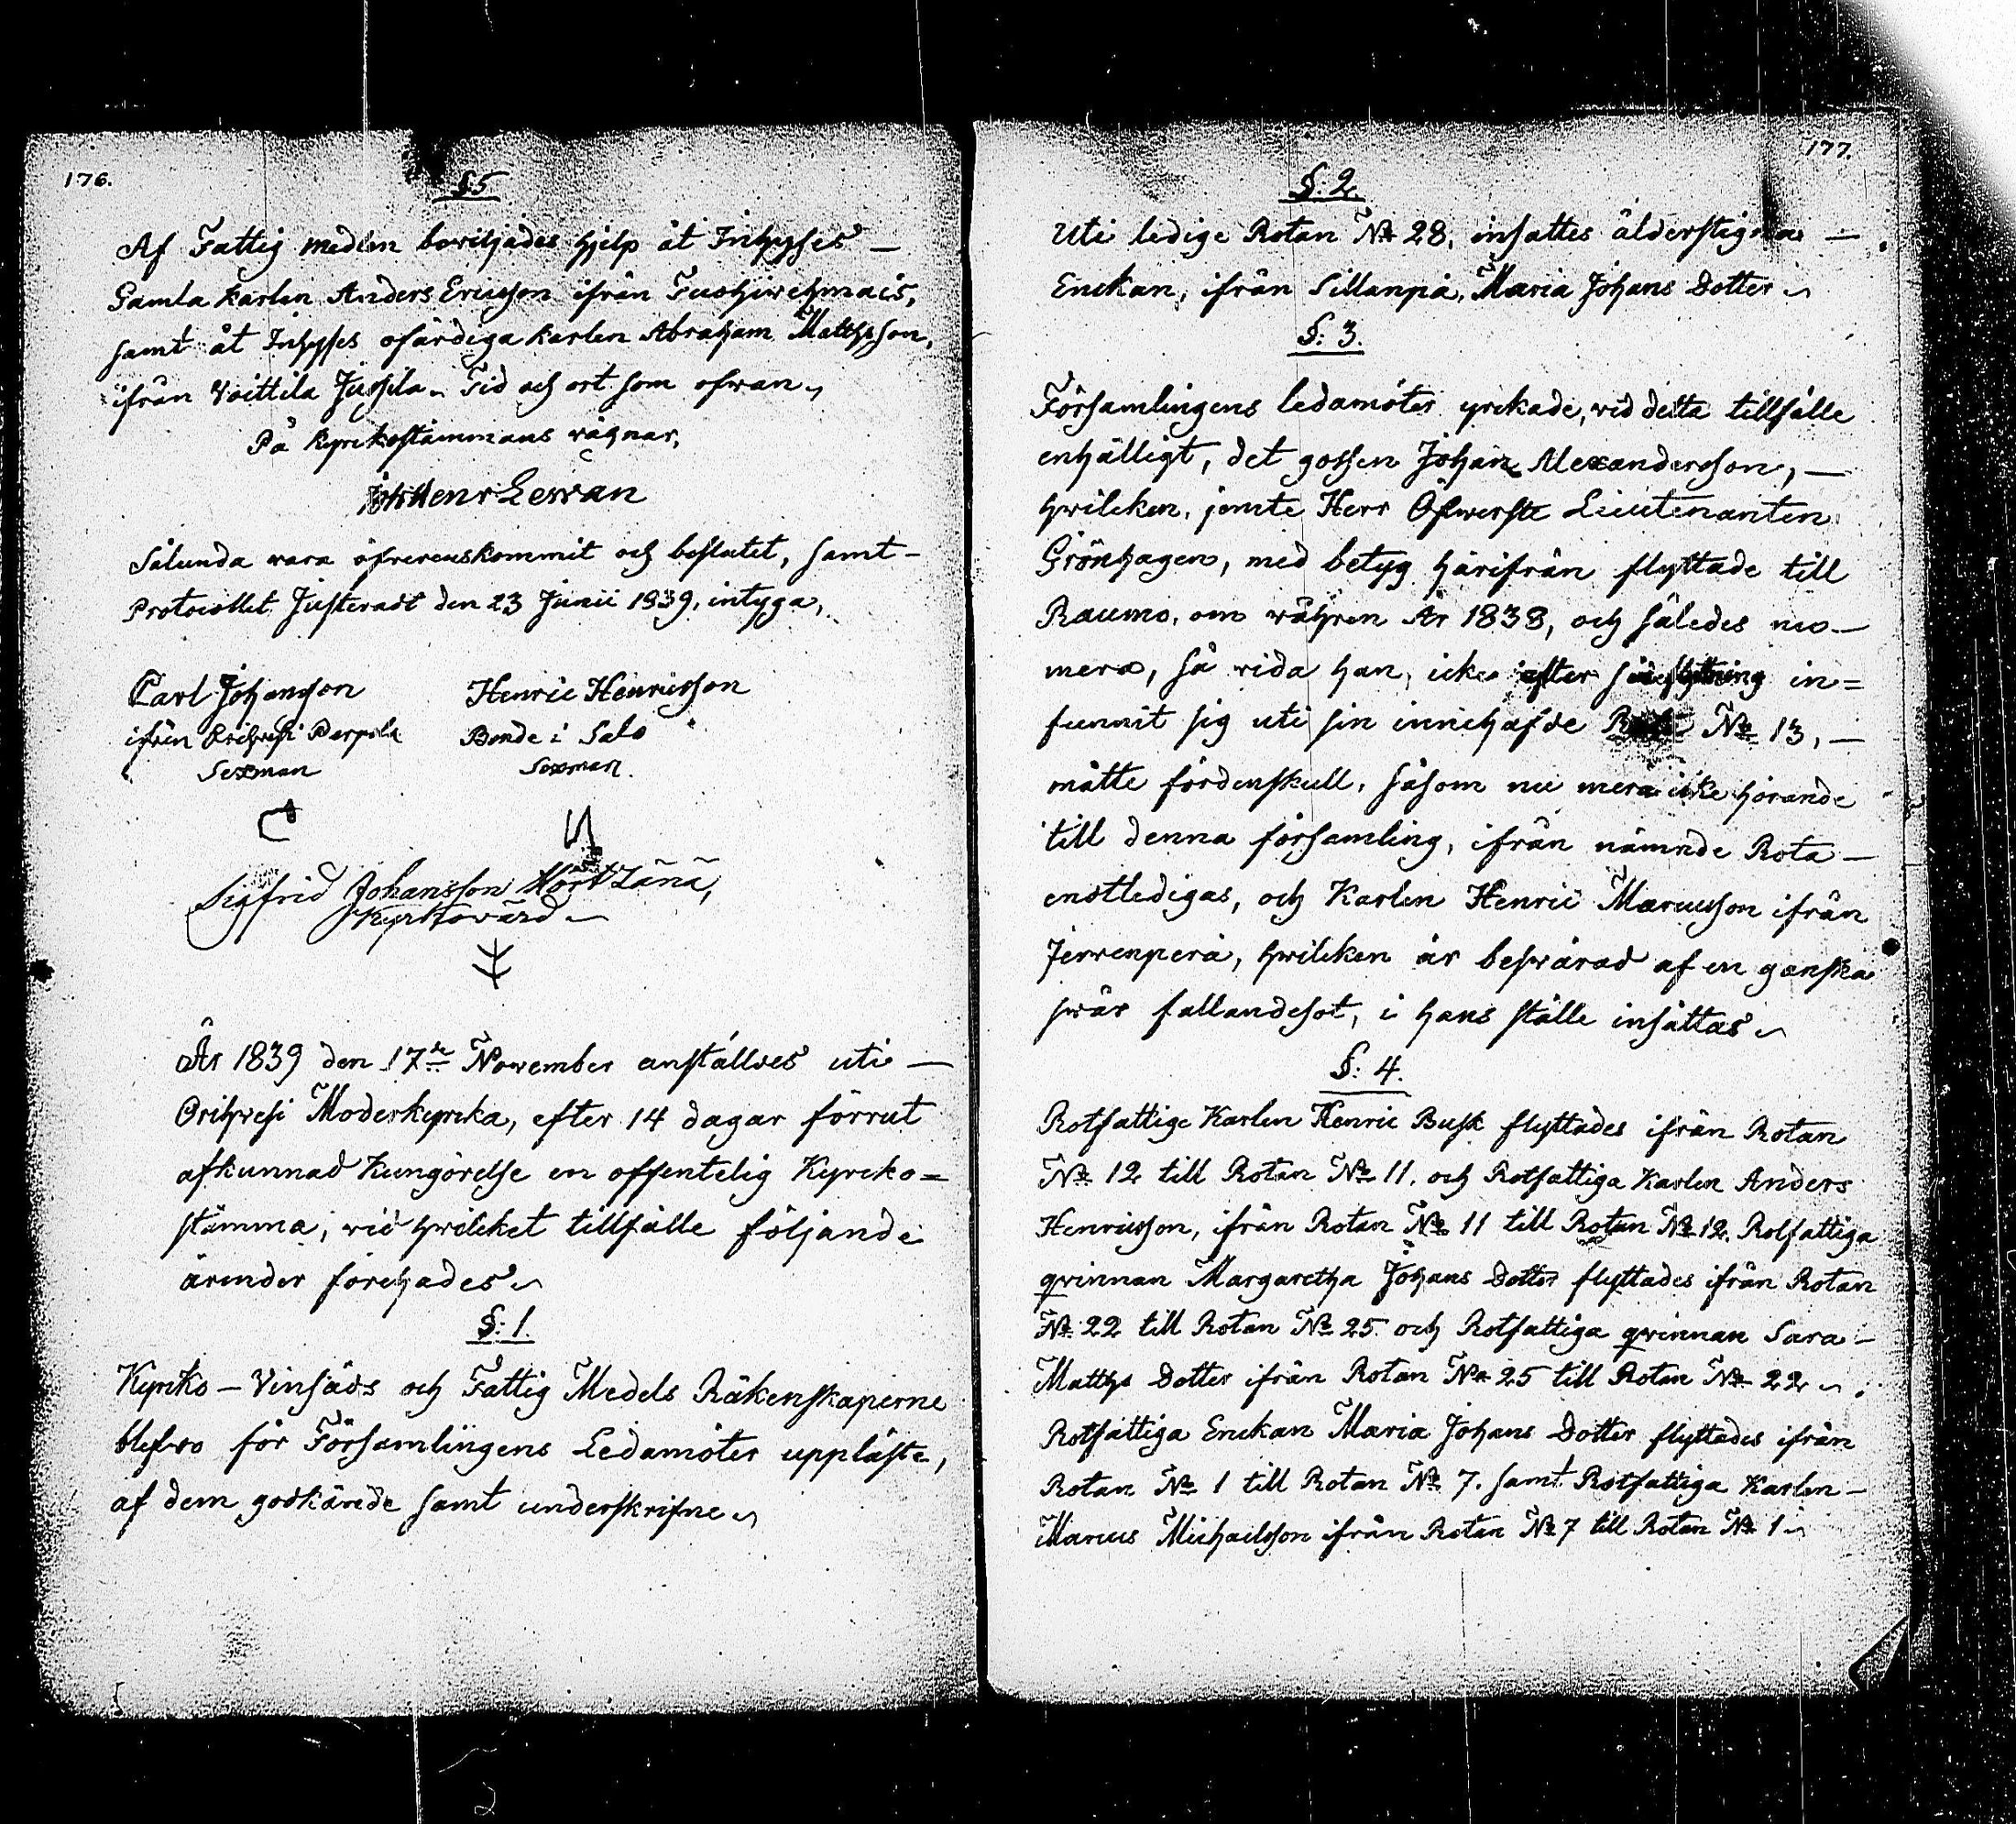 176.
§5
Af Fattig medlen beviljades hjelp åt Inhyses –
Gamla karlen Anders Ericsson ifrån
samt åt Inhyses ofärdiga karlen Abraham Mattsson,
ifrån Voittila Jussila. Tid och ort som ofwan
På Kyrkostämmans vägnar,
Henr Lewan
Sålunda vara öfverenskommit och beslutet, samt –
Protocollet Justeradt den 23 Junii 1839, intyga,
Carl Johansson Henric Henricsson
ifrån Orihvesi Perpola Bonde i Salo
Sexman Sexman.
Sigfrid Johansson
Kyrkovärd
År 1839 den 17de November anställdes uti –
Orihvesi Moderkyrka, efter 14 dagar förrut
afkunnad Kungörelse en offentelig Kyrcko=
stämma, vid hvilcket tillfälle följande
ärender förehades
§: 1.
Kyrko – Vinsäds och Fattig Medels Räkenskaperne
blefvo för Församlingens Ledamöter uppläste,
af dem godkände samt underskrifne
177.
§: 2.
Uti ledige Rotan No 28, insattes ålderstigna –
Enckan, ifrån Sillanpä, Maria Johans Dotter
§: 3.
Församlingens ledamöter yrckade, vid detta tillfälle
enhälligt, det gossen Johan Alexandersson, –
hvilcken, jemte Herr Öfwerste Lieutenanten
Grönhagen, med betyg härifrån flyttade till
Raumo, om våhren År 1838, och således nu –
mera, så vida han, icke efter in=
funnit sig uti sin innehafde No 13, –
måtte fördenskull, såsom nu mera icke hörande
till denna församling, ifrån nämnde Rota –
endtledigas, och Karlen Henric Marcusson ifrån
Jerrenperä, hvilcken är besvärad af en ganska
svår fallandesot, i hans ställe insättas
§: 4.
Rotfattige Karlen Henric Busk flyttades ifrån Rotan
No 12 till Rotan No 11, och Rotfattiga Karlen Anders
Henricsson, ifrån Rotan No 11 till Rotan No 12. Rotfattiga
qvinnan Margaretha Johans Dotter flyttades ifrån Rotan
No 22 till Rotan No 25. och Rotfattiga qvinnan Sara –
Matths Dotter ifrån Rotan No 25 till Rotan No 22
Rotfattiga Enckan Maria Johans Dotter flyttades ifrån
Rotan No 1 till Rotan No 7. samt Rotfattiga Karlen –
Marcus Michaelsson ifrån Rotan No 7 till Rotan No 1